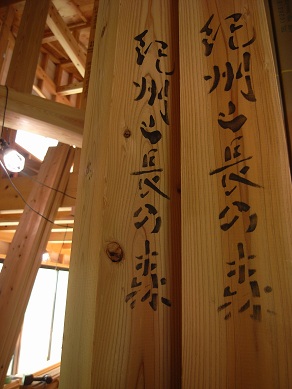 紀州山長の森
紀州山長の森